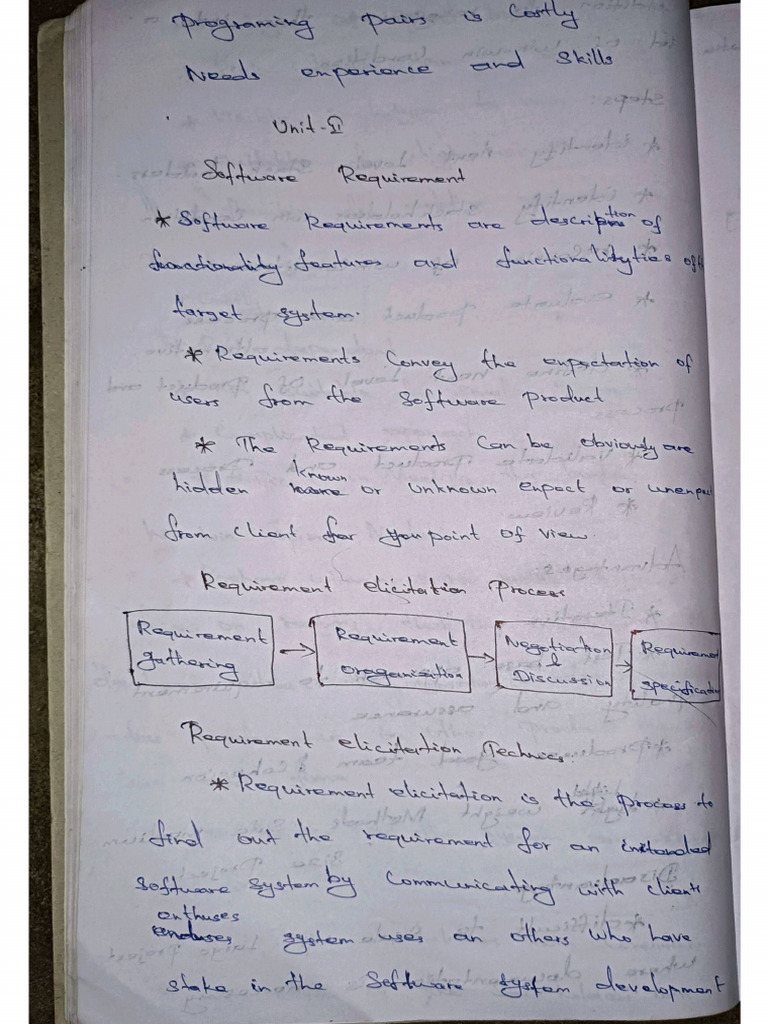 Programing pairs is Costly
Needs experience and Skills
Unit-II
Software Requirement
* Software Requirements are description of
features and functionalityties of
target system.
* Requirements Convey the expectation of
users from the Software product
* The Requirements Can be obviously are
hidden known or unknown expect or unexpec
from client for you point of view.
Requirement elicitation Process
Requirement gathering → Requirement oraganisation → Negotiation & Discussion → Requirement specification
Requirement elicitation Technics.
* Requirement elicitation is the process to
find out the requirement for an intended
Software system by Communicating with clients
enthuses system uses an others who have
stake in the Software system development